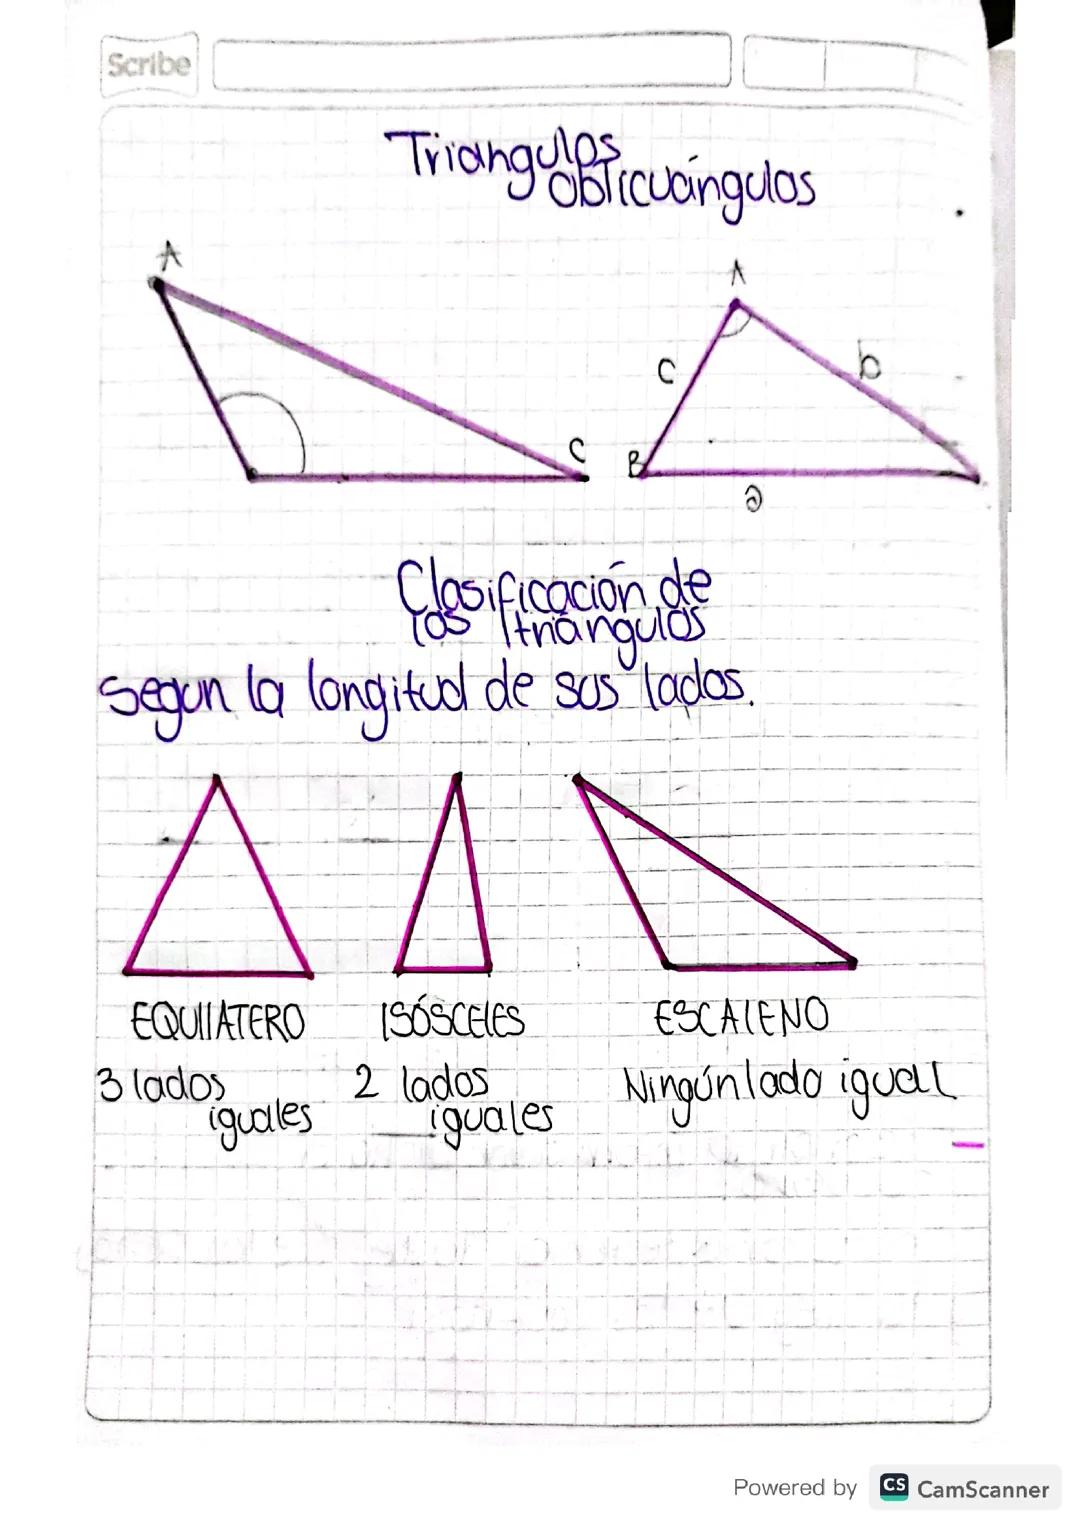 Scribe
Triangulos
oblicuángulos
A
A
c
b
C
B
a
Clasificación de
los triángulos
Segun la longitud de sus lados.
EQUILATERO ISÓSCELES ESCALENO
3 lados 2 lados Ningún lado igual
iguales iguales
Powered by CS CamScanner